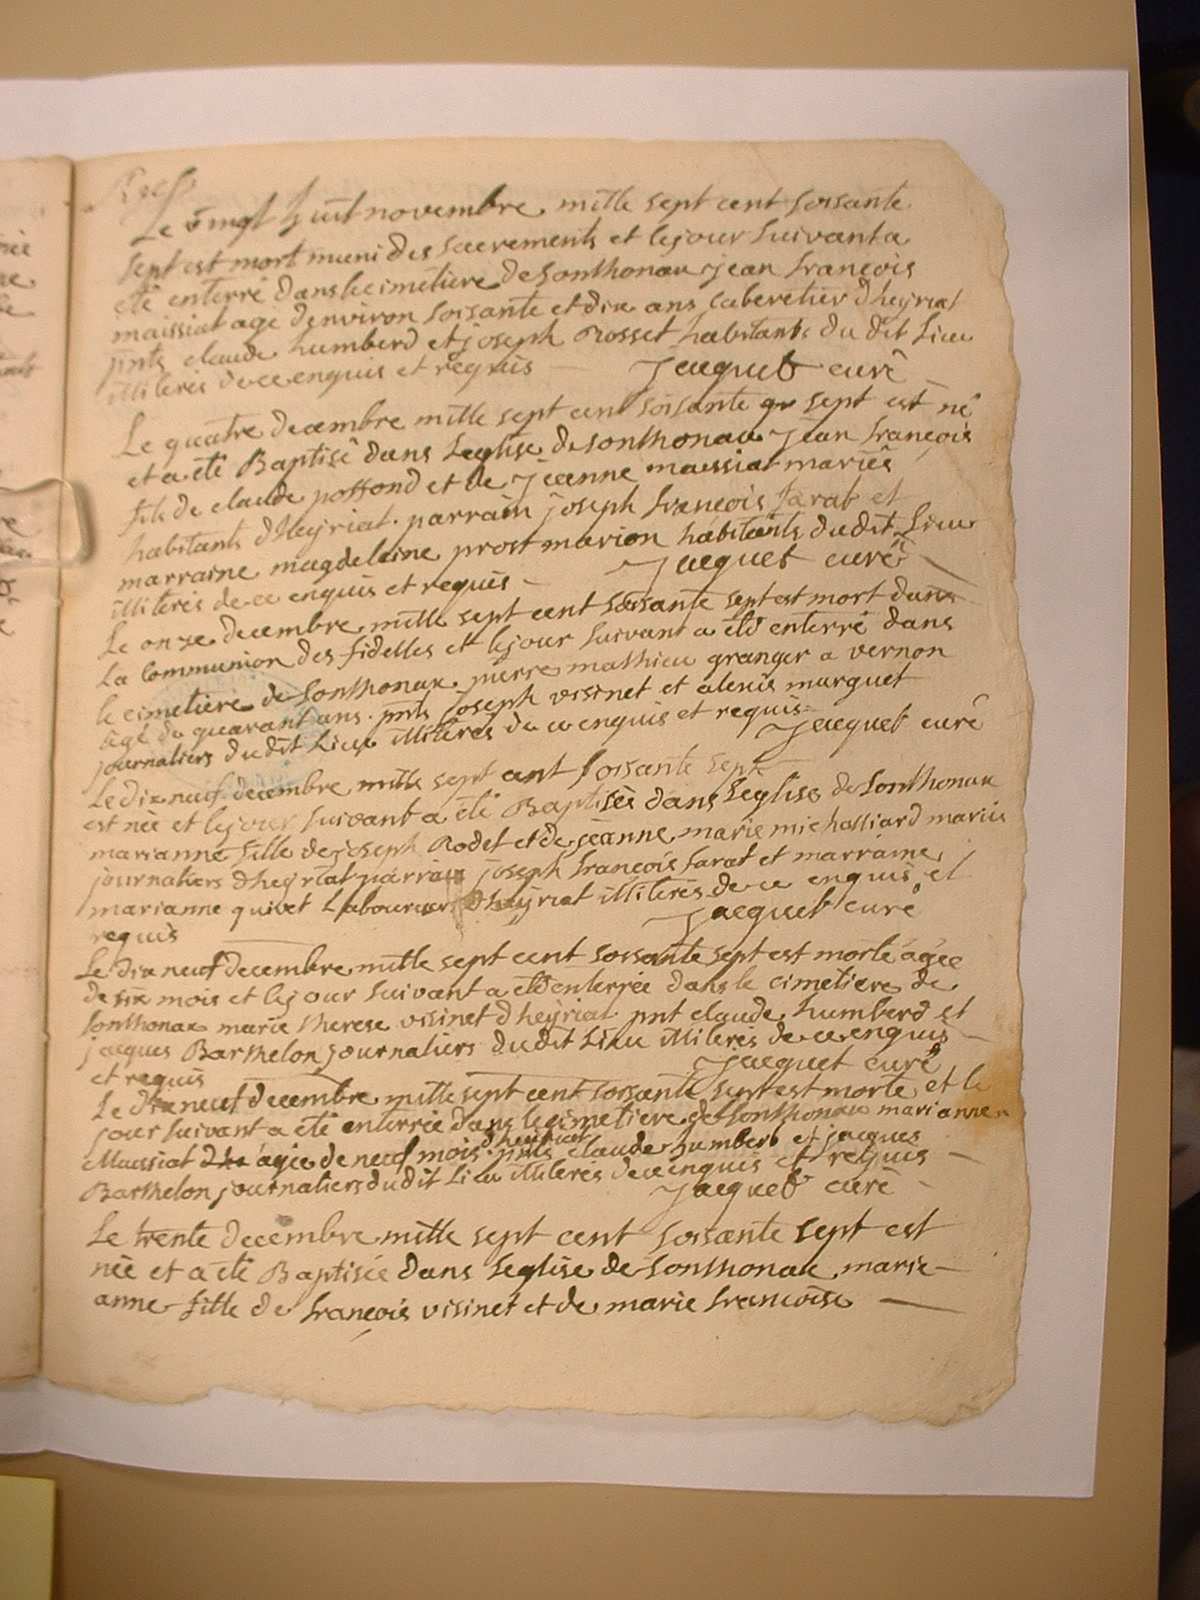 Le vingt huit novembre mille sept cent soisante
sept est mort muni des sacrements et le jour suivant a
eté enterré dans le cimetiere de Sonthonax jean françois
maissiat agé denviron soisante et dix ans caberetier dheyriat
pnts claude humberd et joseph Rosset habitants du dit lieu
illiterés de ce enquis et requis Jacquet curé
Le quatre decembre mille sept cent soisante sept est né
et a eté Baptisé dans Leglise de Sonthonax jean françois
fils de claude poffond et de jeanne maissiat mariés
habitants dHeyriat. parrain joseph francois farat et
marraine magdelaine prost marion habitants dudit Lieu
illiterés de ce enquis et requis Jacquet curé
Le onze decembre mille sept cent soisante sept est mort dans
La communion des fidelles et lejour suivant a eté enterré dans
le cimetiere de Sonthonax pierre mathieu granger a vernon
agé de quarant ans. pnts joseph visinet et alexis marguet
journaliers dudit Lieu illiterés de ce enquis et requis Jacquet curé
Le dix neuf decembre mille sept cent soisante sept
est née et lejour suivant a été Baptisée dans Leglise de Sonthonax
marianne fille de joseph Rodet et de jeanne marie michalliard mariés
journaliers dheyriat parrain joseph françois farat et marraine
marianne quivet Laboureurs dheyriat illiterés de ce enquis et
requis Jacquet curé
Le dix neuf decembre mille sept cent soisante sept est morte agée
de six mois et lejour suivant a eté enterrée dans le cimetiere de
Sonthonax marie therese visinet dheyriat pnt claude humberd et
jacques Barthelon journaliers dudit Lieu illiterés de ce enquis
et requis Jacquet curé
Le dix neuf decembre mille sept cent soisante sept est morte et le
jour suivant a eté enterrée dans le cimetiere de Sonthonax marianne
dheyriat
Maissiat agée de neuf mois pnts claude humberd et jacques
Barthelon journaliers dudit Lieu illiterés de ce enquis et requis
Jacquet curé
Le trente decembre mille sept cent soisante sept est
née et a eté Baptisée dans Leglise de Sonthonax marie
anne fille de françois visinet et de marie francoise